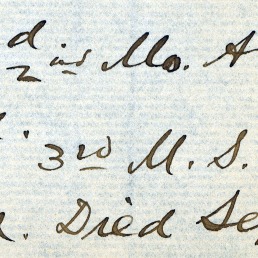 2nd Mo. A
3rd M. S.
Died Sep